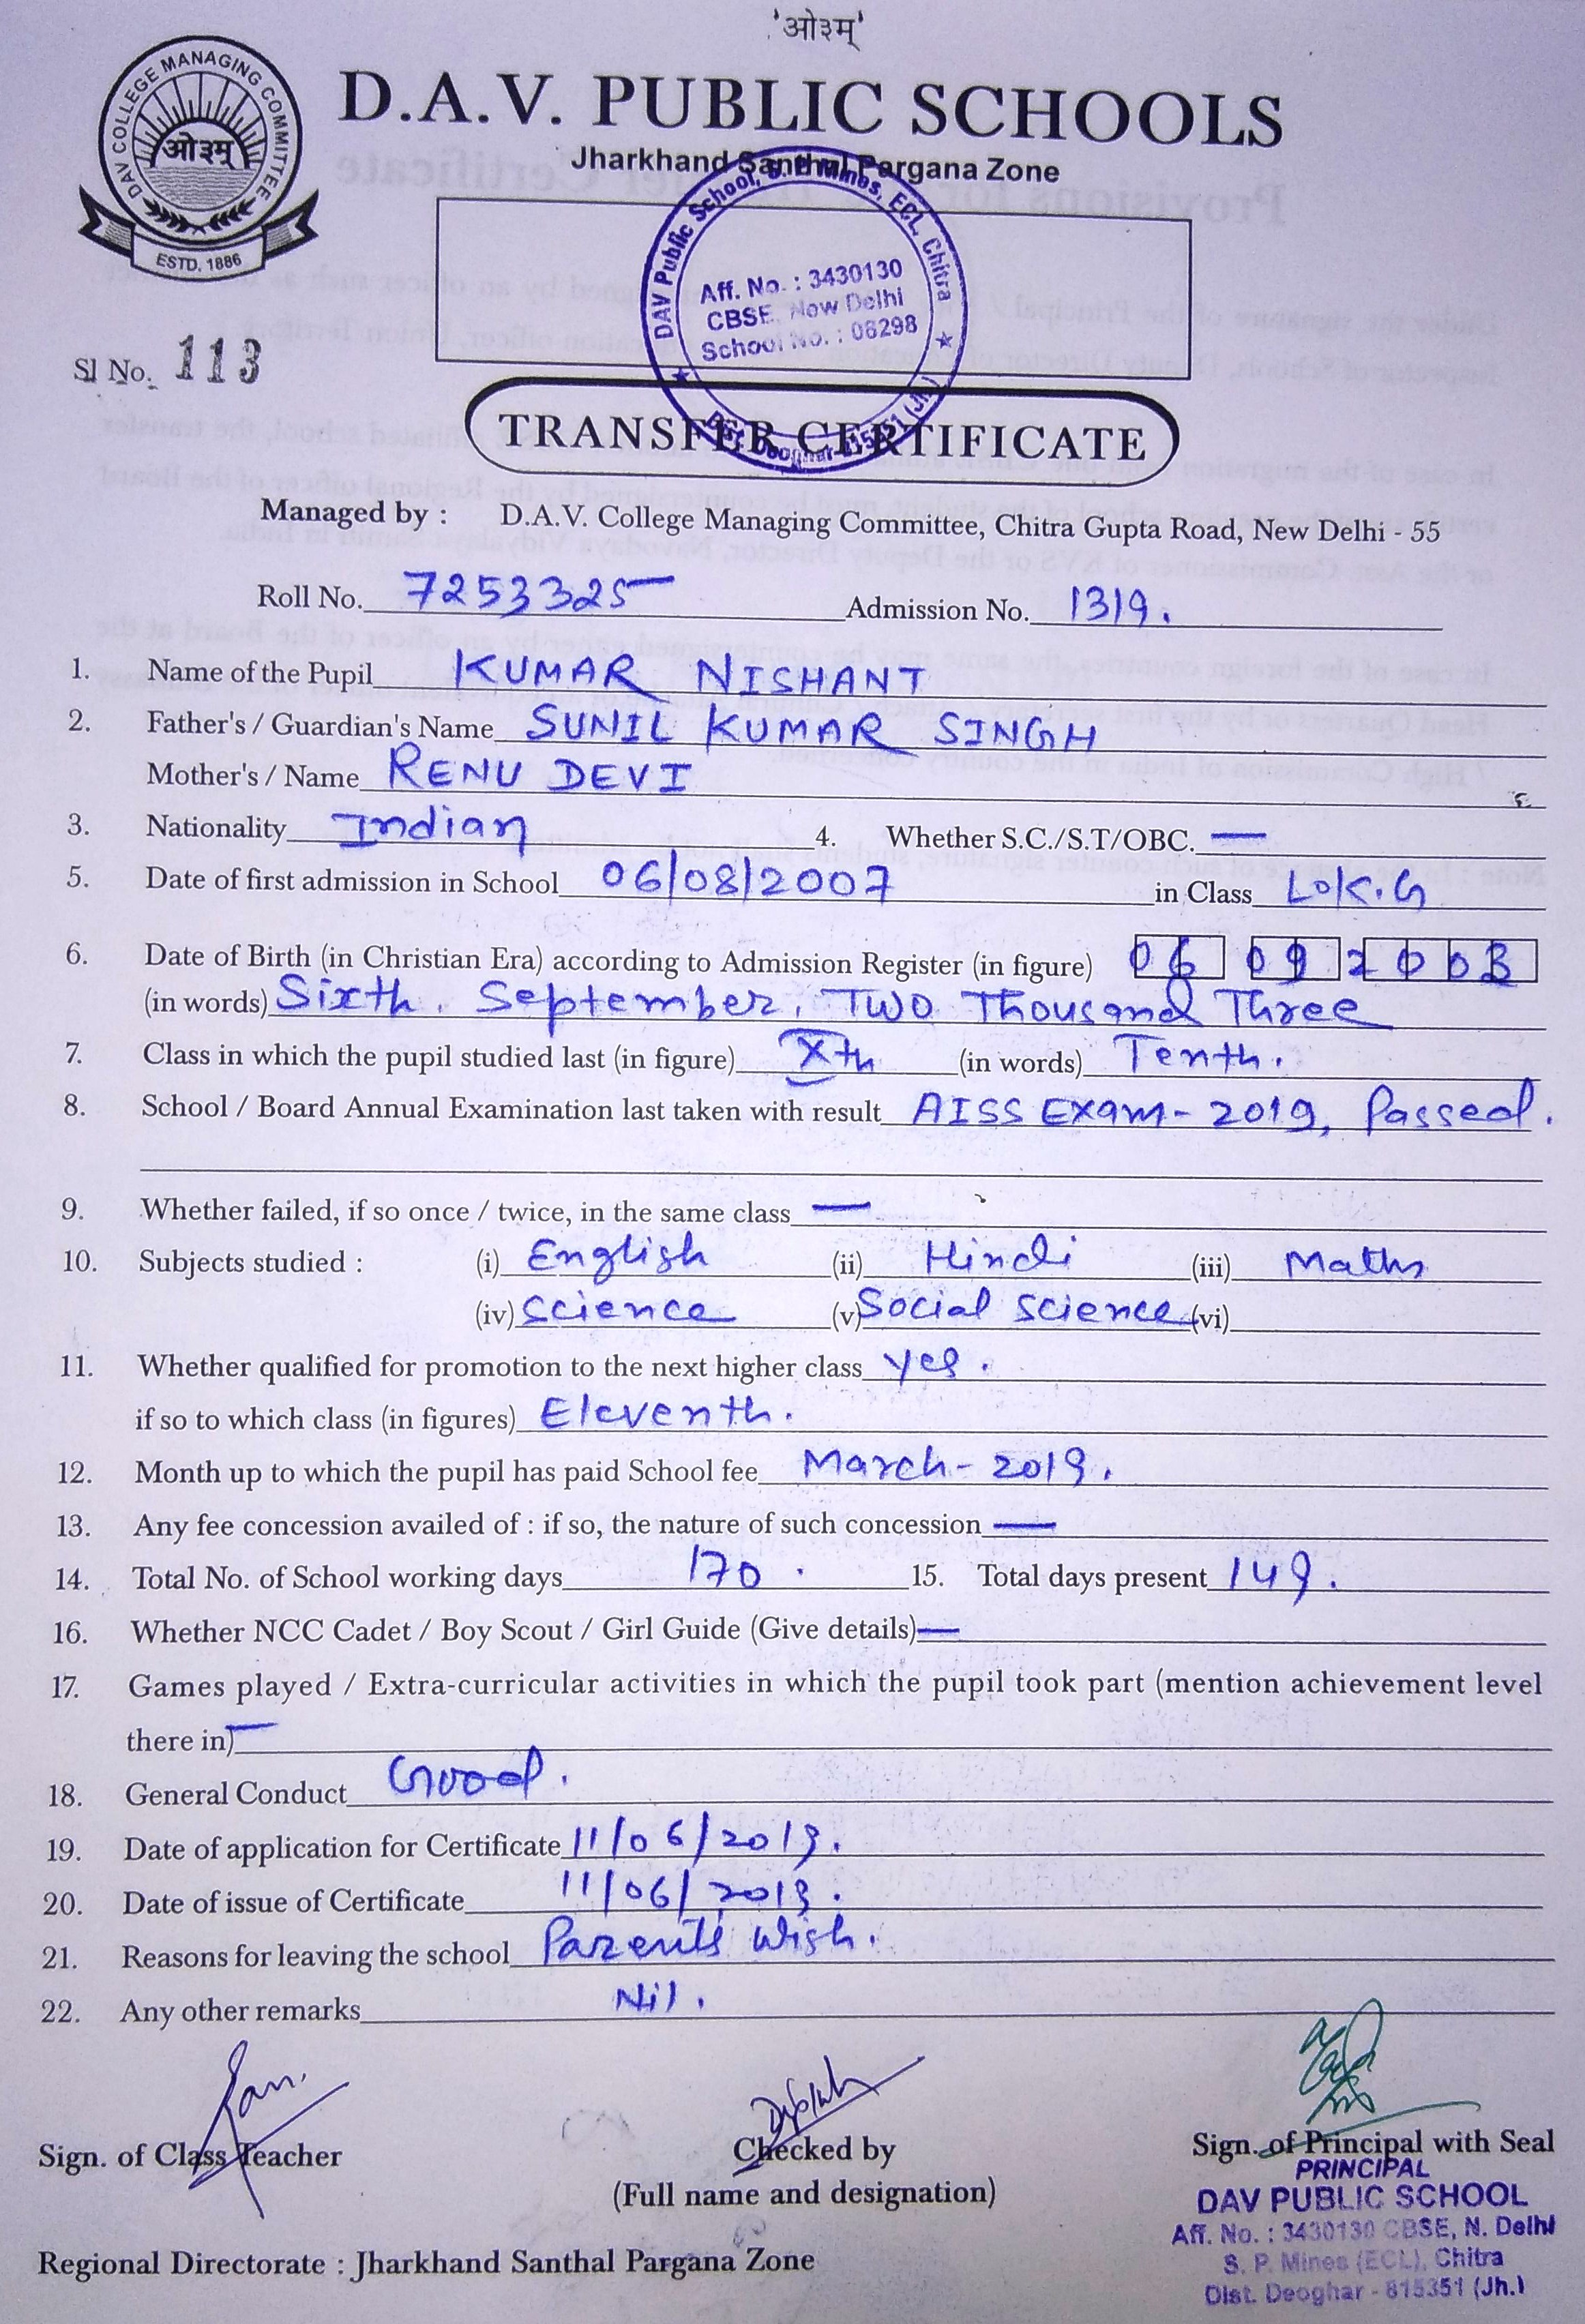 'ओ३म्'
DAV COLLEGE MANAGING COMMITTEE
ओ३म्
ESTD. 1886
D.A.V. PUBLIC SCHOOLS
Jharkhand Santhal Pargana Zone
DAV Public School, S. P. Mines, ECL, Chitra
Aff. No. : 3430130
CBSE, New Delhi
School No. : 08298
Dist. Deoghar-815351 (Jh.)
Sl No. 113
TRANSFER CERTIFICATE
Managed by : D.A.V. College Managing Committee, Chitra Gupta Road, New Delhi - 55
Roll No. 7253325 Admission No. 1319.
1. Name of the Pupil KUMAR NISHANT
2. Father's / Guardian's Name SUNIL KUMAR SINGH
Mother's / Name RENU DEVI
3. Nationality Indian 4. Whether S.C./S.T/OBC. —
5. Date of first admission in School 06/08/2007 in Class L.K.G
6. Date of Birth (in Christian Era) according to Admission Register (in figure) 06 09 2003
(in words) Sixth. September. Two Thousand Three
7. Class in which the pupil studied last (in figure) Xth (in words) Tenth.
8. School / Board Annual Examination last taken with result AISS Exam - 2019, Passed.
9. Whether failed, if so once / twice, in the same class —
10. Subjects studied : (i) English (ii) Hindi (iii) Maths
(iv) Science (v) Social Science (vi)
11. Whether qualified for promotion to the next higher class yes.
if so to which class (in figures) Eleventh.
12. Month up to which the pupil has paid School fee March - 2019.
13. Any fee concession availed of : if so, the nature of such concession —
14. Total No. of School working days 170. 15. Total days present 149.
16. Whether NCC Cadet / Boy Scout / Girl Guide (Give details) —
17. Games played / Extra-curricular activities in which the pupil took part (mention achievement level
there in) —
18. General Conduct Good.
19. Date of application for Certificate 11/06/2019.
20. Date of issue of Certificate 11/06/2019.
21. Reasons for leaving the school Parents Wish.
22. Any other remarks Nil.
Sign. of Class Teacher
Checked by
(Full name and designation)
Sign. of Principal with Seal
PRINCIPAL
DAV PUBLIC SCHOOL
Aff. No. : 3430130 CBSE, N. Delhi
S. P. Mines (ECL), Chitra
Dist. Deoghar - 815351 (Jh.)
Regional Directorate : Jharkhand Santhal Pargana Zone